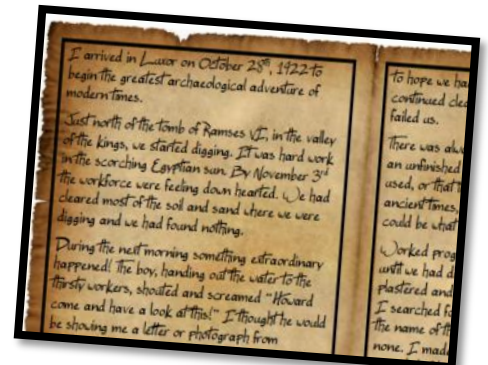 I arrived in Luxor on October 28th, 1922 to
begin the greatest archaeological adventure of
modern times.
Just north of the tomb of Ramses VI, in the valley
of the kings, we started digging. It was hard work
in the scorching Egyptian sun. By November 3rd
the workforce were feeling down hearted. We had
cleared most of the soil and sand where we were
digging and we had found nothing.
During the next morning something extraordinary
happened! The boy, handing out the water to the
thirsty workers, shouted and screamed "Howard
come and have a look at this!" I thought he would
be showing me a letter or photograph from
to hope we ha
continued clea
failed us.
There was alw
an unfinished
used, or that
ancient times,
could be what
Worked prog
until we had d
plastered and
I searched fo
the name of th
none. I made